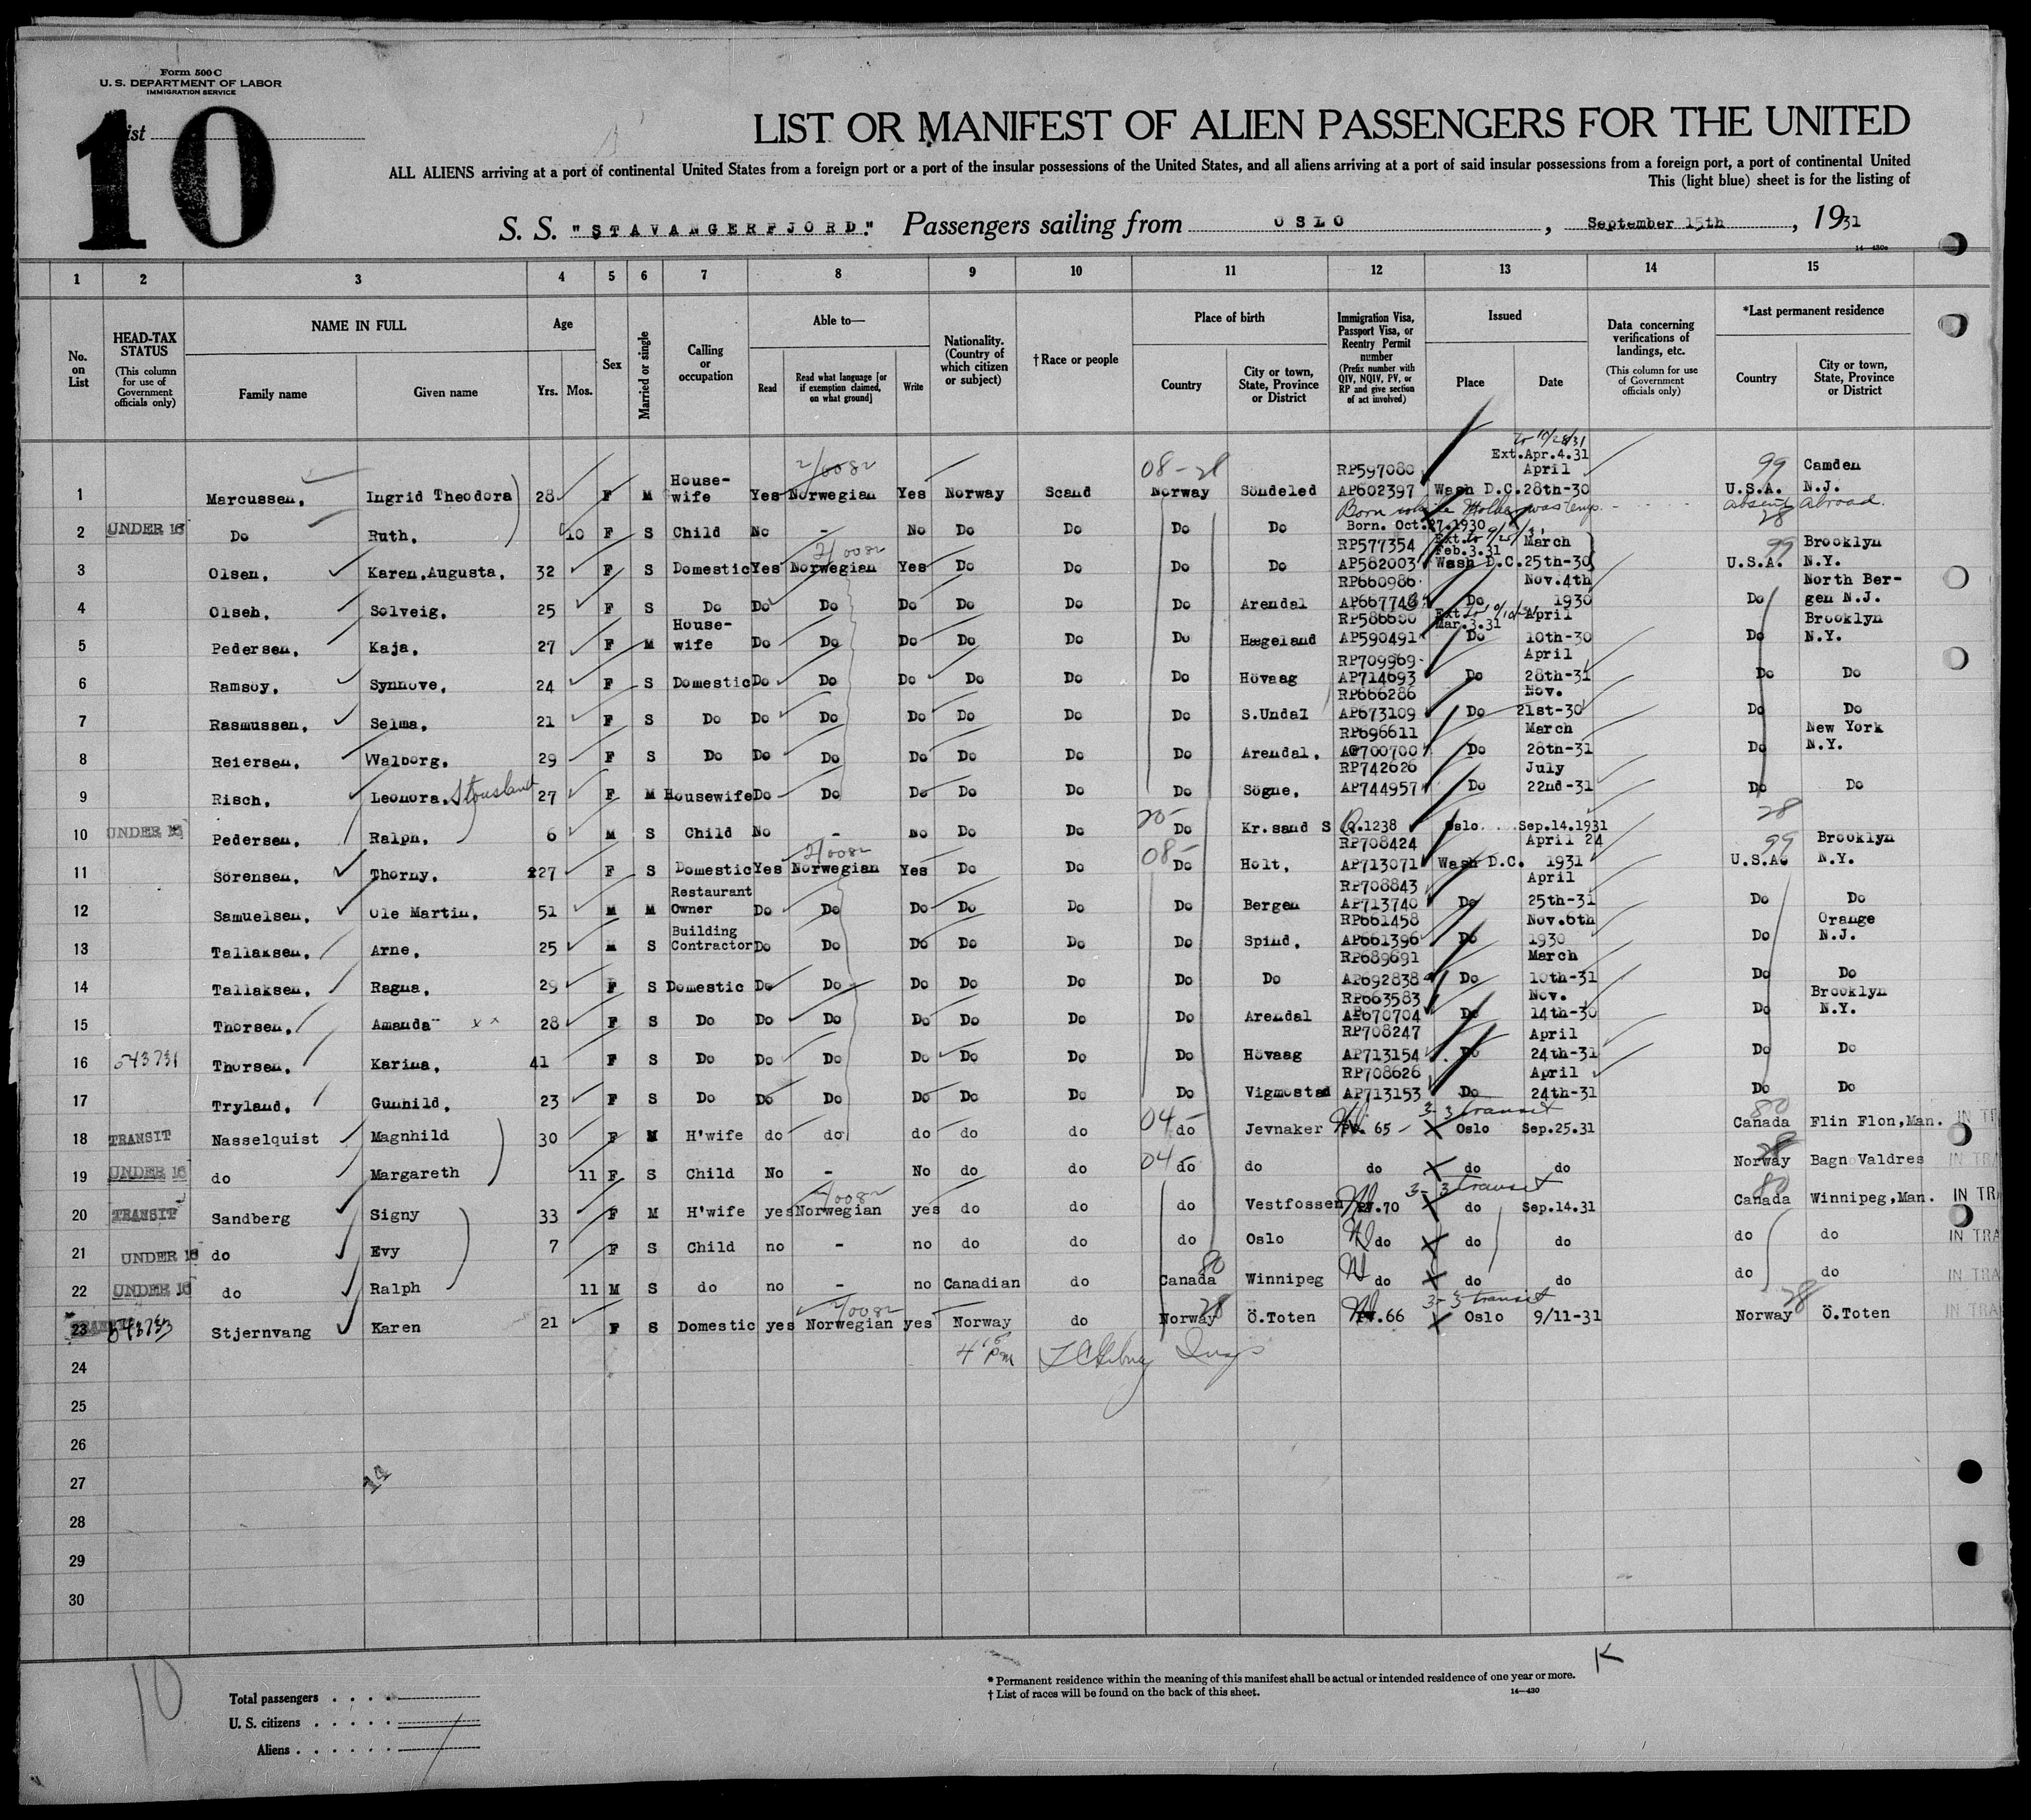 Form 500 C
U. S. DEPARTMENT OF LABOR
IMMIGRATION SERVICE
List
10
LIST OR MANIFEST OF ALIEN PASSENGERS FOR THE UNITED
ALL ALIENS arriving at a port of continental United States from a foreign port or a port of the insular possessions of the United States, and all aliens arriving at a port of said insular possessions from a foreign port, a port of continental United
This (light blue) sheet is for the listing of
S. S. "STAVANGERFJORD." Passengers sailing from OSLO, September 15th, 1931
14—430c
1 2 3 4 5 6 7 8 9 10 11 12 13 14 15
No. on List
HEAD-TAX STATUS (This column for use of Government officials only)
NAME IN FULL Family name Given name
Age Yrs. Mos.
Sex
Married or single
Calling or occupation
Able to— Read Read what language [or if exemption claimed, on what ground] Write
Nationality. (Country of which citizen or subject)
†Race or people
Place of birth Country City or town, State, Province or District
Immigration Visa, Passport Visa, or Reentry Permit number (Prefix number with QIV, NQIV, PV, or RP and give section of act involved)
Issued Place Date
Data concerning verifications of landings, etc. (This column for use of Government officials only)
*Last permanent residence Country City or town, State, Province or District
1 Marcussen, Ingrid Theodora 28 F M House-wife Yes Norwegian Yes Norway Scand Norway Söndeled RP597080 AP602397 Wash D.C. Ext.Apr.4.31 to 10/28/31 April 28th-30 U.S.A. Camden N.J.
2 UNDER 16 Do Ruth, 10 F S Child No - No Do Do Do Do Born while Mother was temp. absent abroad. Born. Oct.27.1930
3 Olsen, Karen,Augusta, 32 F S Domestic Yes Norwegian Yes Do Do Do Do RP577354 AP582003 Feb.3.31 Wash D.C. March 25th-30 U.S.A. Brooklyn N.Y.
4 Olseh, Solveig, 25 F S Do Do Do Do Do Do Do Arendal RP660986 AP667746 Do Nov.4th 1930 Do North Ber-gen N.J.
5 Pedersen, Kaja, 27 F M House-wife Do Do Do Do Do Do Hægeland RP586680 AP590491 Mar.3.31 Do April 10th-30 Do Brooklyn N.Y.
6 Ramsoy, Synnove, 24 F S Domestic Do Do Do Do Do Do Hövaag RP709969 AP714693 Do April 28th-31 Do Do
7 Rasmussen, Selma, 21 F S Do Do Do Do Do Do Do S.Undal RP666286 AP673109 Do Nov. 21st-30 Do Do
8 Reiersen, Walborg, 29 F S Do Do Do Do Do Do Do Arendal, RP696611 AP700700 Do March 28th-31 Do New York N.Y.
9 Risch, Leonora, Stousland 27 F M Housewife Do Do Do Do Do Do Sögne, RP742626 AP744957 Do July 22nd-31 Do Do
10 UNDER 16 Pedersen, Ralph, 6 M S Child No - No Do Do Do Kr.sand S Q.1238 Oslo Sep.14.1931 28
11 Sörensen, Thorny, 27 F S Domestic Yes Norwegian Yes Do Do Do Holt, RP708424 AP713071 Wash D.C. April 24 1931 U.S.A. Brooklyn N.Y.
12 Samuelsen, Ole Martin, 51 M M Restaurant Owner Do Do Do Do Do Do Bergen RP708843 AP713740 Do April 25th-31 Do Do
13 Tallaksen, Arne, 25 M S Building Contractor Do Do Do Do Do Do Spind, RP661458 AP661396 Do Nov.6th 1930 Do Orange N.J.
14 Tallaksen, Ragna, 29 F S Domestic Do Do Do Do Do Do Do RP689691 AP692838 Do March 10th-31 Do Do
15 Thorsen, Amanda 28 F S Do Do Do Do Do Do Do Arendal RP663583 AP670704 Do Nov. 14th-30 Do Brooklyn N.Y.
16 543731 Thorsen, Karina, 41 F S Do Do Do Do Do Do Do Hövaag RP708247 AP713154 Do April 24th-31 Do Do
17 Tryland, Gunhild, 23 F S Do Do Do Do Do Do Do Vigmostad RP708626 AP713153 Do April 24th-31 Do Do
18 TRANSIT Nasselquist Magnhild 30 F M H'wife do do do do do do Jevnaker PV. 65 3-3 transit Oslo Sep.25.31 Canada Flin Flon,Man.
19 UNDER 16 do Margareth 11 F S Child No - No do do do do do do do Norway Bagn Valdres
20 TRANSIT Sandberg Signy 33 F M H'wife yes Norwegian yes do do do Vestfossen PV.70 3-3 transit do Sep.14.31 Canada Winnipeg,Man. IN TRA
21 UNDER 16 do Evy 7 F S Child no - no do do do Oslo do do do do do IN TRA
22 UNDER 16 do Ralph 11 M S do no - no Canadian do Canada Winnipeg do do do do do IN TRA
23 543733 Stjernvang Karen 21 F S Domestic yes Norwegian yes Norway do Norway Ö.Toten PV.66 3-3 transit Oslo 9/11-31 Norway Ö.Toten IN TRA
24
25
26
27
28
29
30
10
Total passengers
U. S. citizens
Aliens
* Permanent residence within the meaning of this manifest shall be actual or intended residence of one year or more.
† List of races will be found on the back of this sheet.
14—430
K